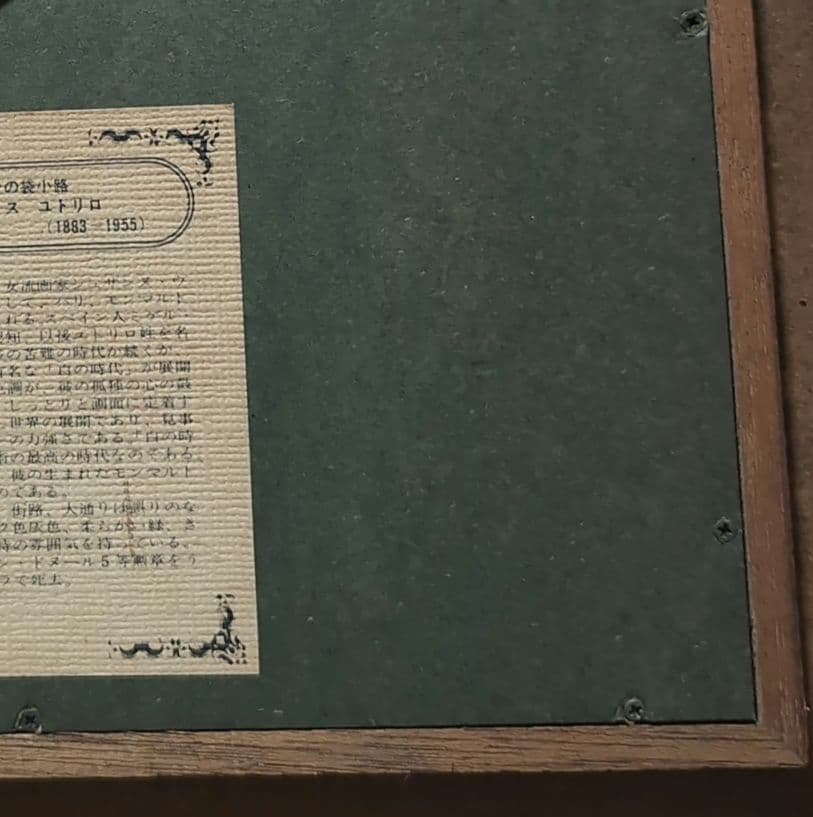 の袋小路
ス ユトリロ
(1883 1955)
女流画家シュザンヌ・ヴ
して、パリ、モンマルト
れる。スペイン人ミゲル・
認知、以後ユトリロ姓を名
の苦難の時代が続くが、
有名な「白の時代」が展開
色調が、彼の孤独の心の
しっとりと画面に定着す
世界の展開であり、見事
の力強さである。「白の時
術の最高の時代なのである。
彼の生まれたモンマルト
のである。
街路、大通りは のな
色灰色、柔らかい緑、き
時の雰囲気を持っている。
ン・ドヌール5等勲章をう
で死去。